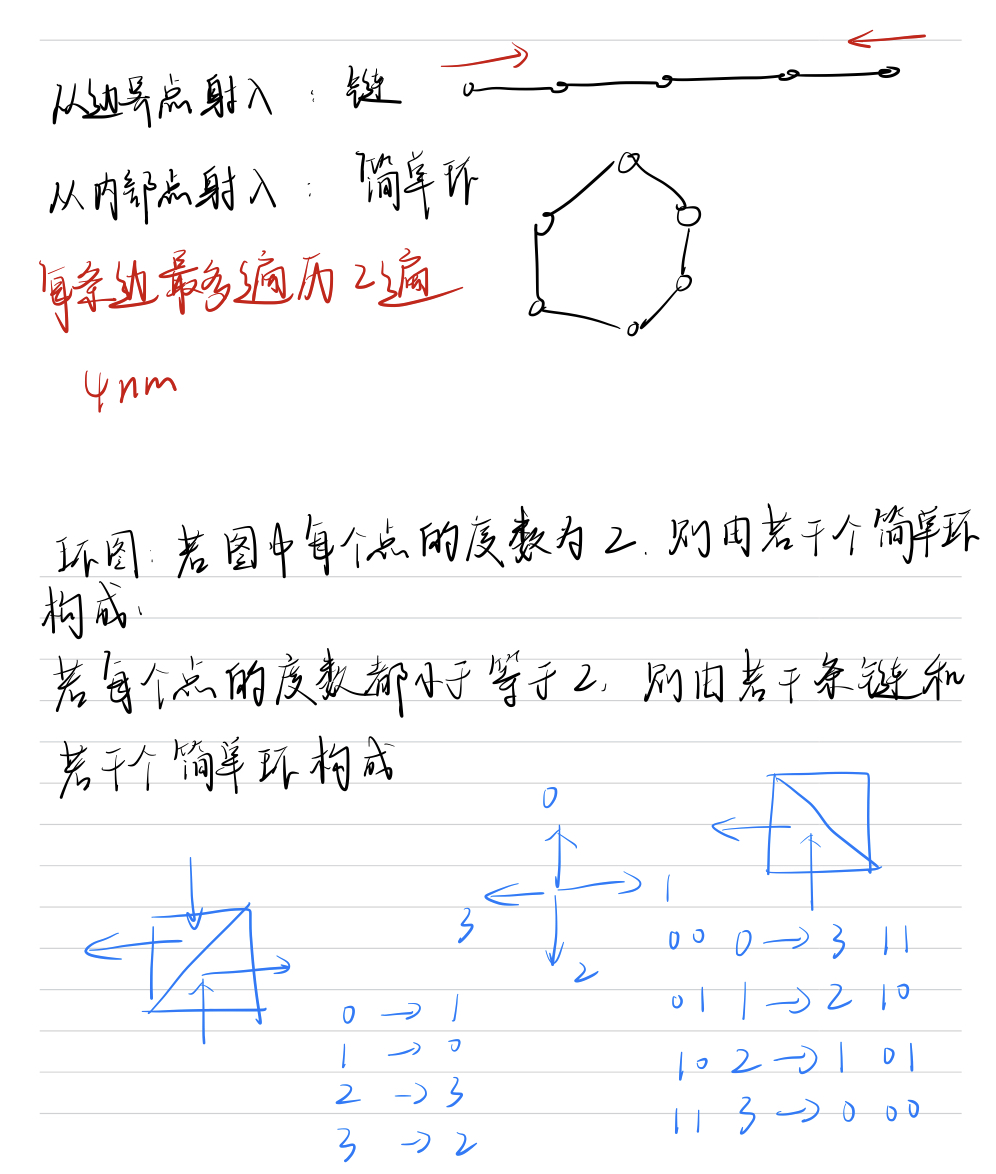 从边界点射入：链
从内部点射入：简单环
每条边最多遍历2遍
4nm
环图：若图中每个点的度数为2，则由若干个简单环
构成.
若每个点的度数都小于等于2，则由若干条链和
若干个简单环构成
0
1
3
2
0 → 1
1 → 0
2 → 3
3 → 2
00 0 → 3 11
01 1 → 2 10
10 2 → 1 01
11 3 → 0 00